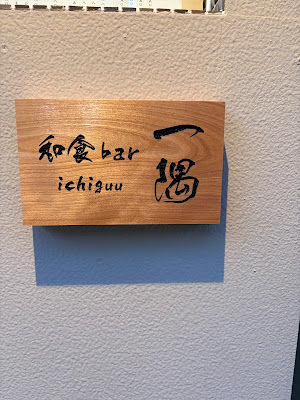 和食bar
ichiguu
一隅